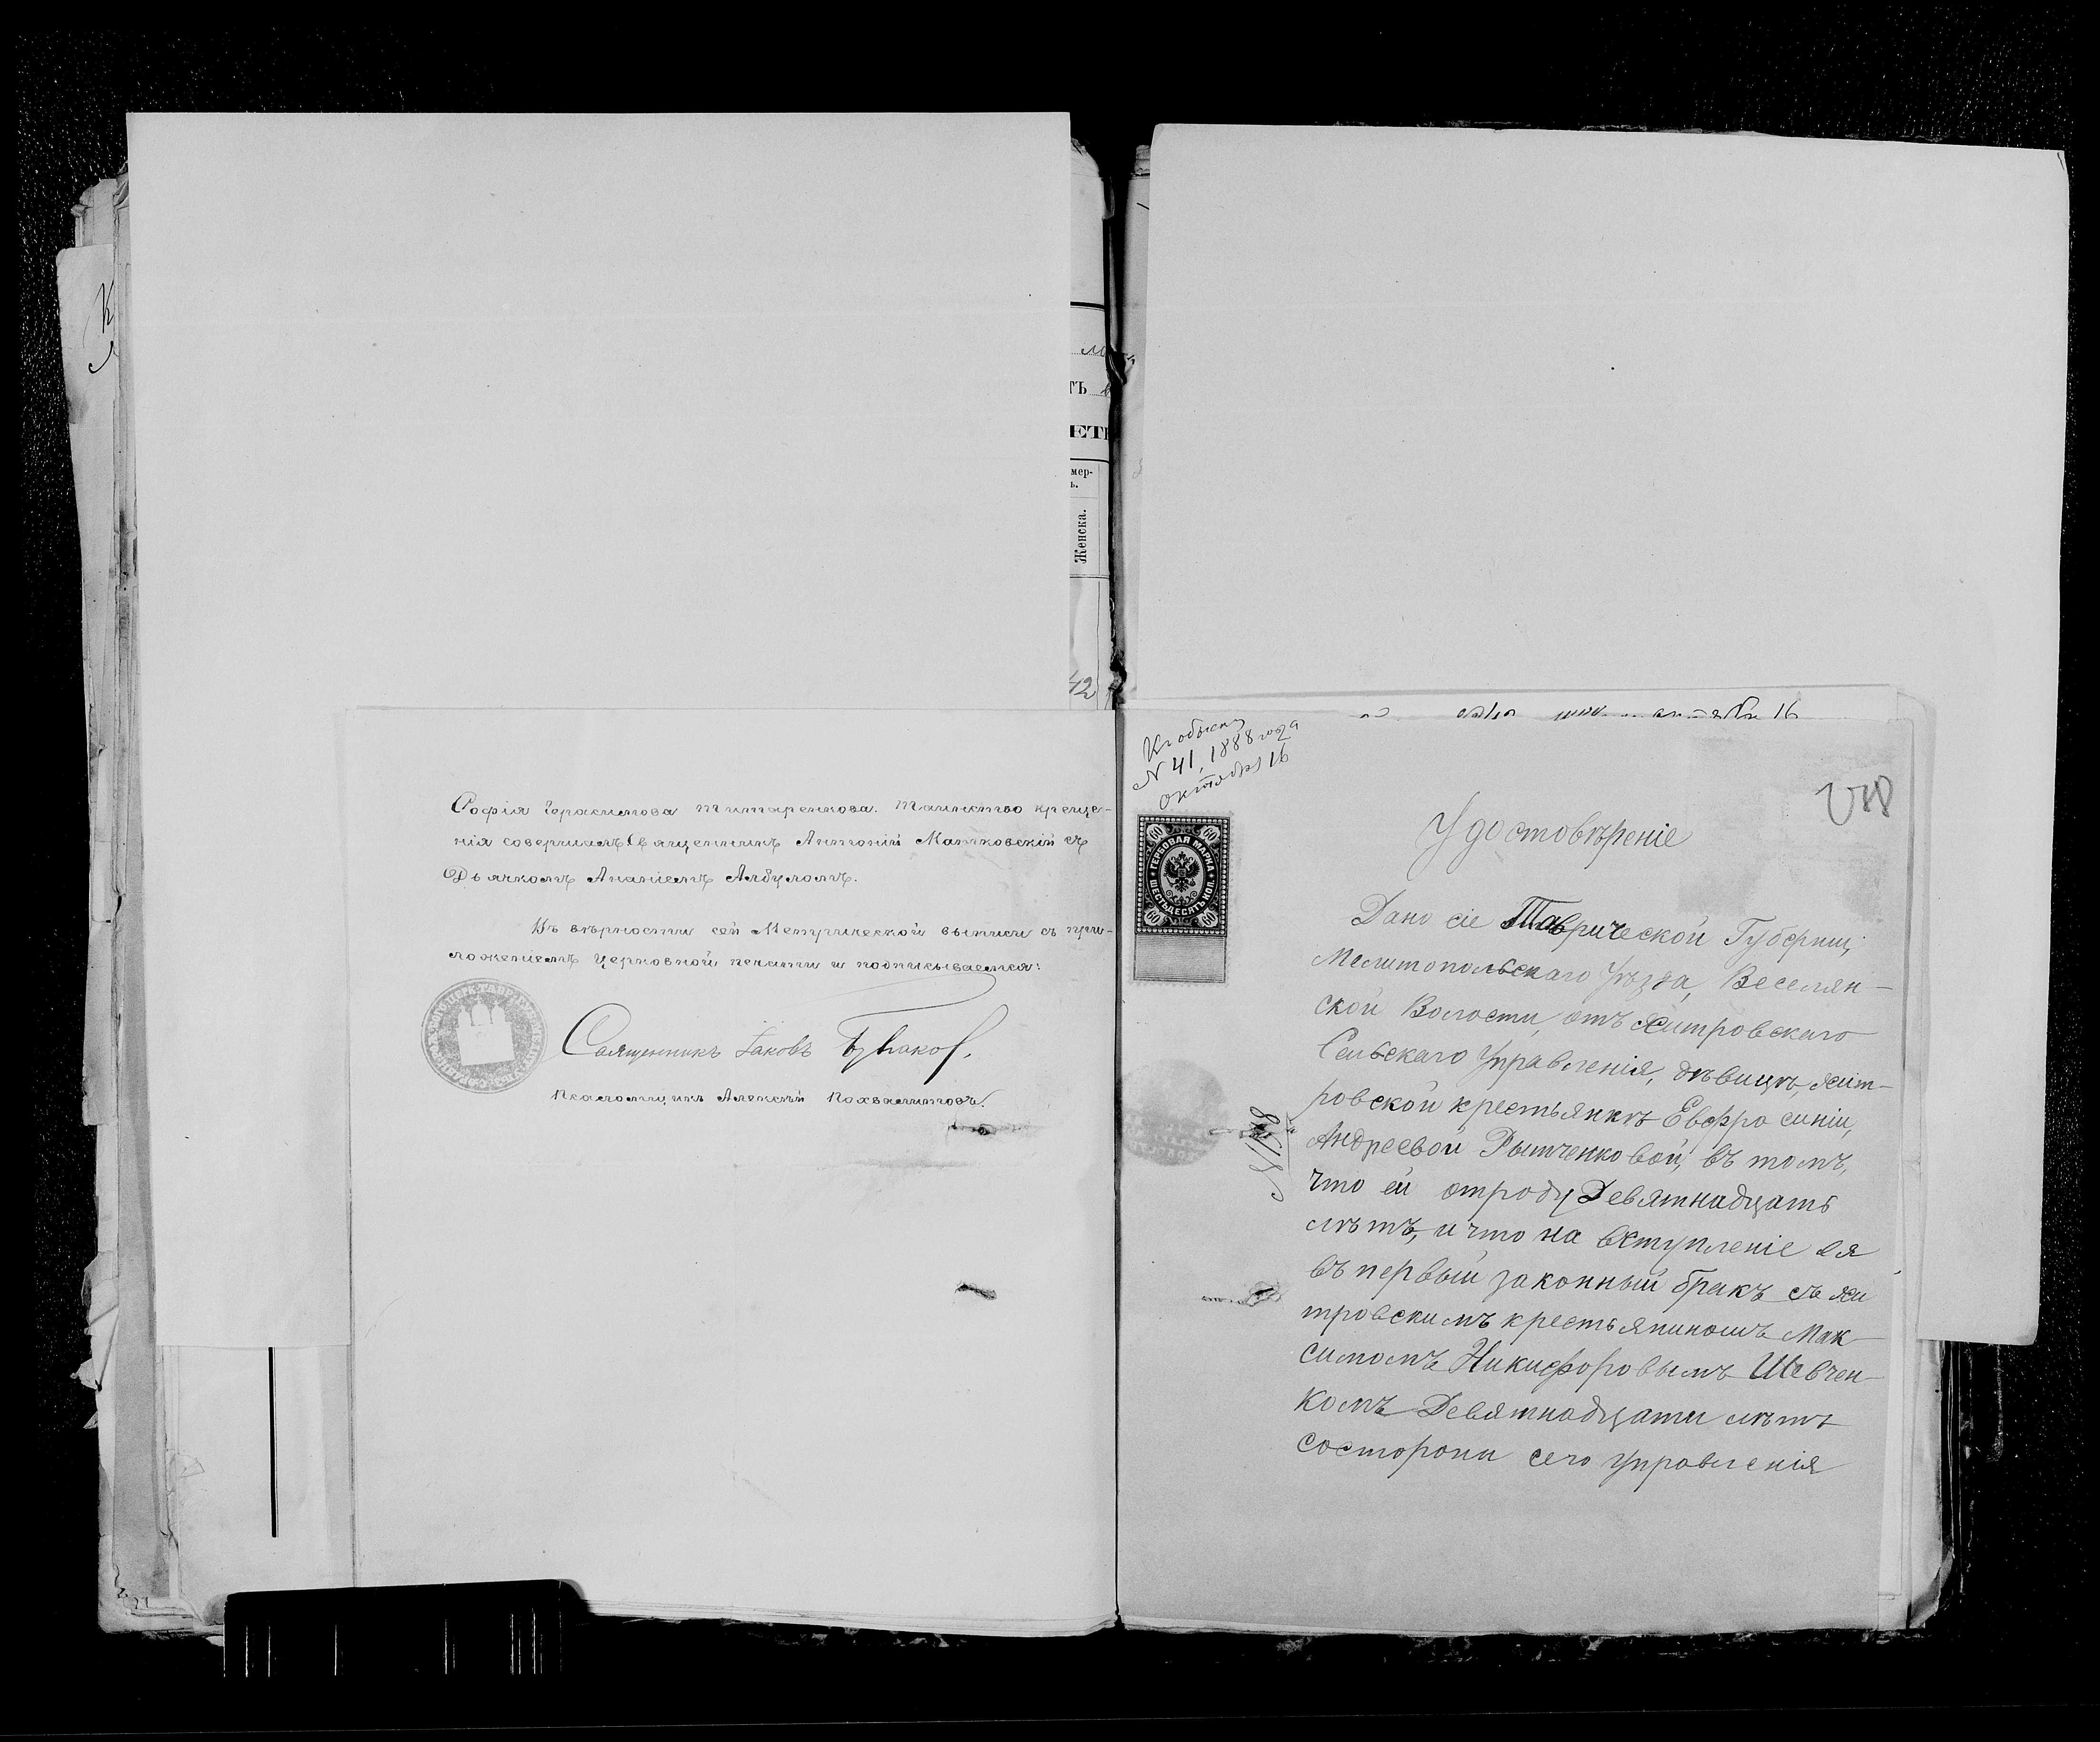 Софія Герасимова Титаренкова. Таинство креще-
нія совершалъ Священникъ Антоній Матковскій съ
Дьячкомъ Ананіемъ Албуломъ.
Въ вѣрности сей Метрической выписи съ при-
ложеніемъ Церковной печати и подписываемся:
Священникъ Іаковъ
Псаломщикъ Алексѣй Похвалитовъ.
мер-
ъ.
Женска.
42
Къ обыску
N 41, 1888 года
октября 16
ГЕРБОВАЯ МАРКА
ШЕСТЬДЕСЯТЪ КОП.
60 60
60 60
Удостовѣреніе
Дано сіе Таврической Губерніи,
Мелитопольскаго Уѣзда, Веселян-
ской Волости, отъ Хитровскаго
Сельскаго Управленія, дѣвицѣ, Хит-
ровской крестьянкѣ Евфросиніи,
Андреевой Рытченковой, въ томъ,
что ей отроду Девятнадцать
лѣтъ, и что на вступленіе ея
въ первый законный бракъ съ Хи
тровскимъ крестьяниномъ Мак-
симомъ Никифоровымъ Шевчен-
комъ Девятнадцати лѣтъ
состороны сего управленія